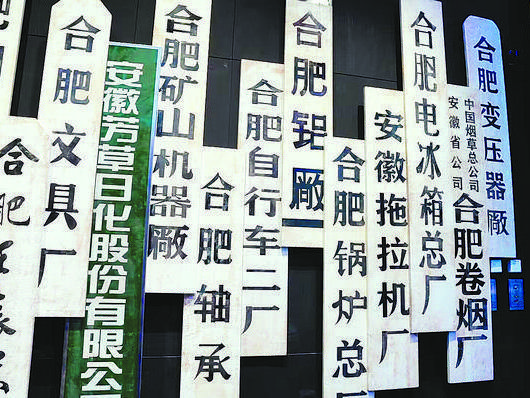 合肥文具厂
安徽芳草日化股份有限公
合肥矿山机器厰
合肥轴承
合肥自行车二厂
合肥铝厰
合肥锅炉总厂
安徽拖拉机厂
合肥电冰箱总厂
中国烟草总公司
安徽省公司
合肥卷烟厂
合肥变压器厰
合肥